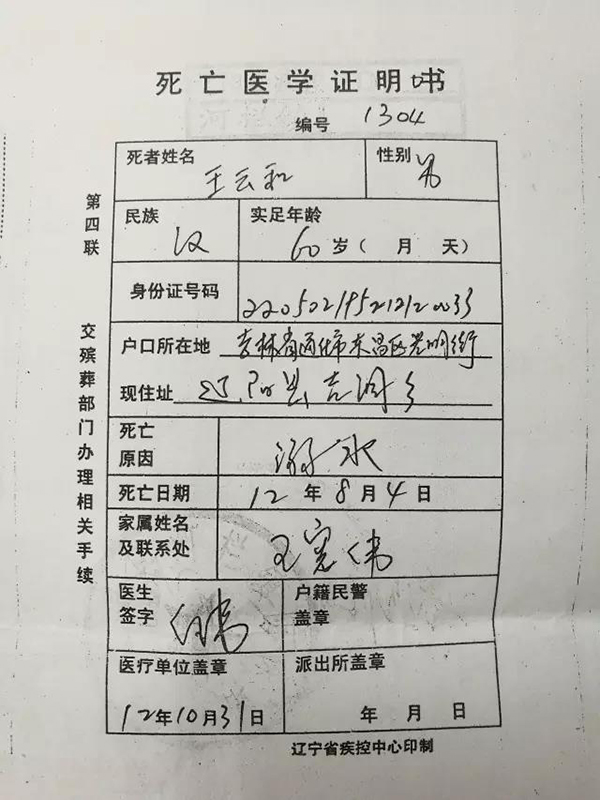 死亡医学证明书
编号 1304
死者姓名 王云和 性别 男
民族 汉 实足年龄 60岁( 月 天)
身份证号码 220502195212120033
户口所在地 吉林省通化市东昌区光明街
现住址 辽阳县吉洞乡
死亡原因 溺水
死亡日期 12年8月4日
家属姓名及联系处 王宪伟
医生签字
户籍民警盖章
医疗单位盖章 派出所盖章
12年10月31日 年 月 日
辽宁省疾控中心印制
第四联 交殡葬部门办理相关手续